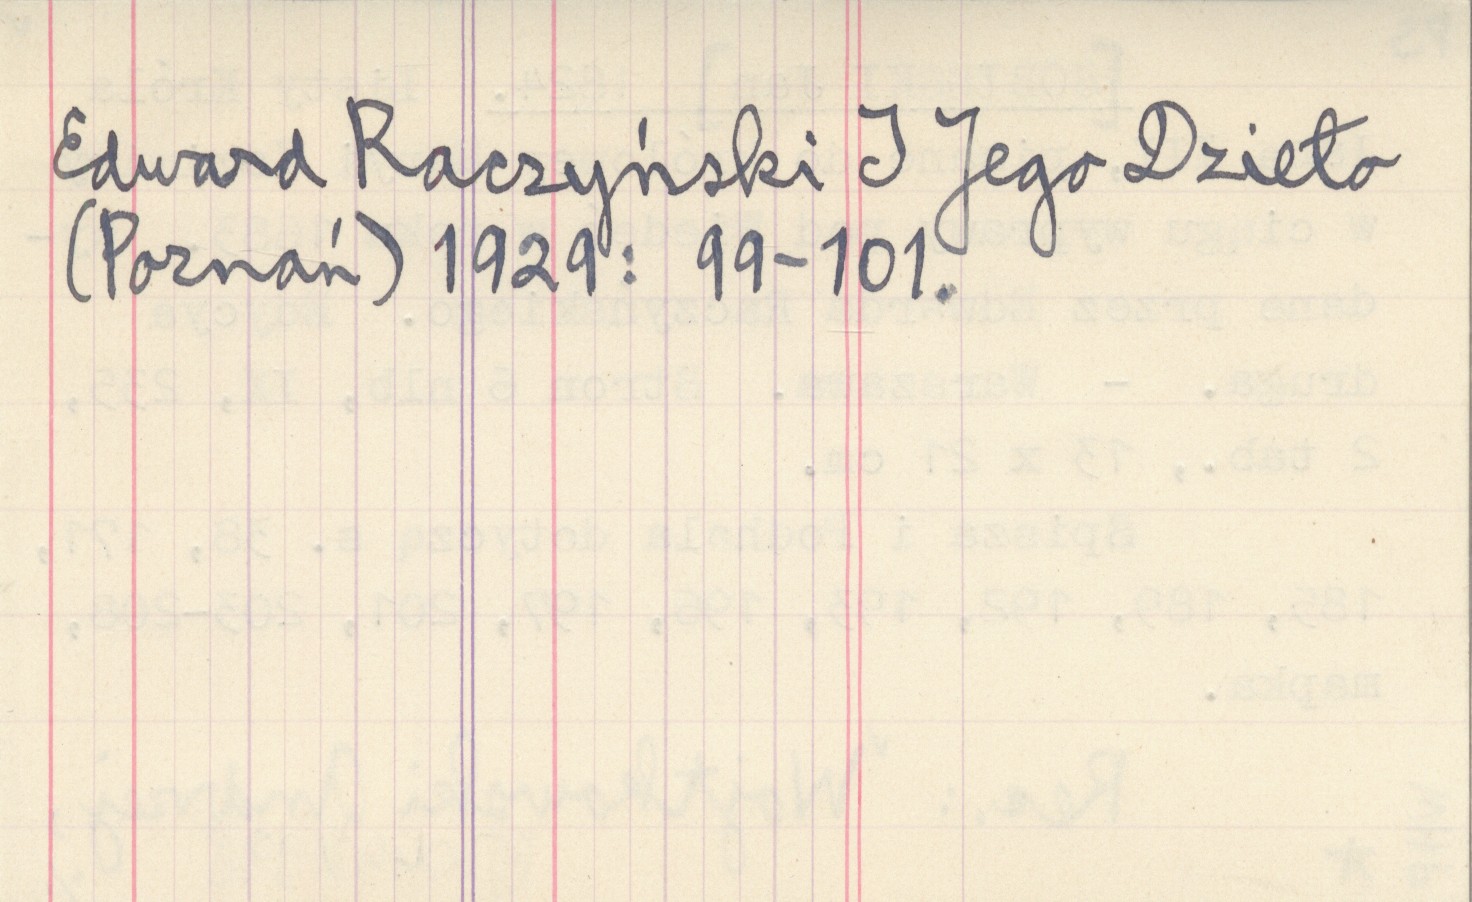 Edward Raczyński I Jego Dzieło
(Poznań) 1929: 99-101.